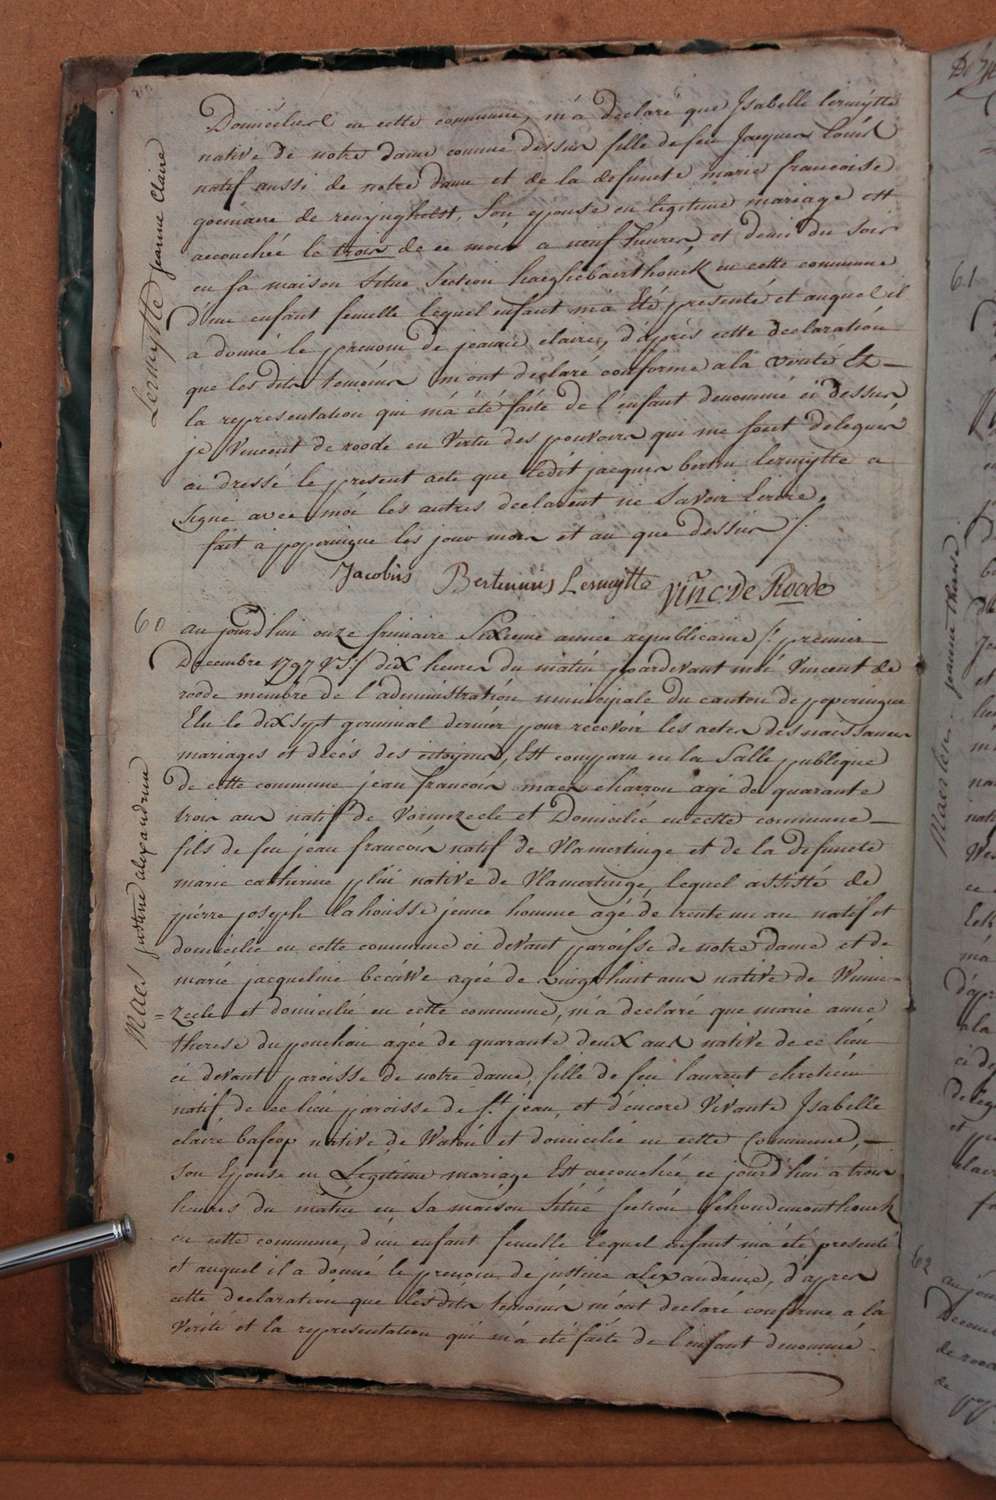 Domiciliée en cette commune, m'a declaré que Isabelle lermytte
native de notre dame comme dessus fille de feu Jacques louis
natif aussi de notre dame et de la defuncte marie francoise
de reninghelst, Son epouse en legitime mariage est
accouchée le trois de ce mois a neuf heures et demi du soir
en sa maison Situe Section haeghebaerthouck en cette commune
d'une enfant femelle lequel enfant m'a été presenté et auquel il
a donné le prenom de jeanne claire, d'après cette declaration
que les dits temoins m'ont declaré conforme a la verité Et
la representation qui m'a été faite de l'enfant denommé ci dessus
je Vincent de roode en Vertu des pouvoirs qui me sont delegués
ai dressé le present acte que ledit jacques bertin lermytte a
signe avec moi les autres declarent ne Savoir Ecrire.
fait a poperingue les jour mois et an que dessus /.
Jacobus Bertinnus Lermytte Vinc De Roode
Lermytte jeanne Claire
60 au jourd'hui onze frimaire Sixieme année republicaine /: premier
Decembre 1797 VS:/ dix heures du matin pardevant moi Vincent de
roode membre de l'administration municipale du canton de poperingue
Elu le dix sept germinal dernier pour recevoir les actes des naissances
mariages et décés des citoyens, Est comparu en la Salle publique
de cette commune jean francois maes charron agé de quarante
trois ans natif de Vormezeele et Domicilié en cette commune
fils de feu jean francois natif de Vlamertinge et de la Defuncte
marie catherine native de Vlamertinge, lequel assisté de
pierre joseph lahousse jeune homme agé de trente un an natif et
domicilié en cette commune ci devant paroisse de notre Dame et de
marie jacqueline becuwe agée de vingt huit ans native de Winne-
=zeele et domicilié en cette commune, m'a declaré que marie anne
therese du ponchau agée de quarante deux ans native de ce lieu
ci devant paroisse de notre dame, fille de feu laurent chretien
natif de ce lieu paroisse de St. jean, et d'encore Vivante Isabelle
claire native de Watou et domicilié en cette Commune,
Son Epouse en Legitime mariage Est accouchée ce jourd'hui a trois
heures du matin en Sa maison Situé Section
en cette commune, d'un enfant femelle lequel enfant m'a été presenté
et auquel il a donné le prenom de justine alexandrine, d'apres
cette declaration que lesdits temoins m'ont declaré conforme a la
Verité et la representation qui m'a été faite de l'enfant denommé
Maes justine alexandrine
61
Maerten jeanne therese
62